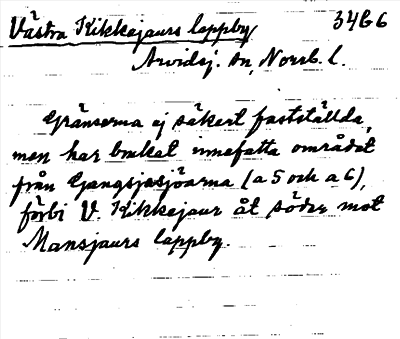 Västra Kikkejaurs lappby 34G6
Arvidsj. sn, Norrb. l.
Gränserna ej säkert fastställda,
men har brukat innefatta området
från Gangsjasjöarna (a 5 och a 6),
förbi V. Kikkejaur åt söder mot
Mansjaurs lappby.